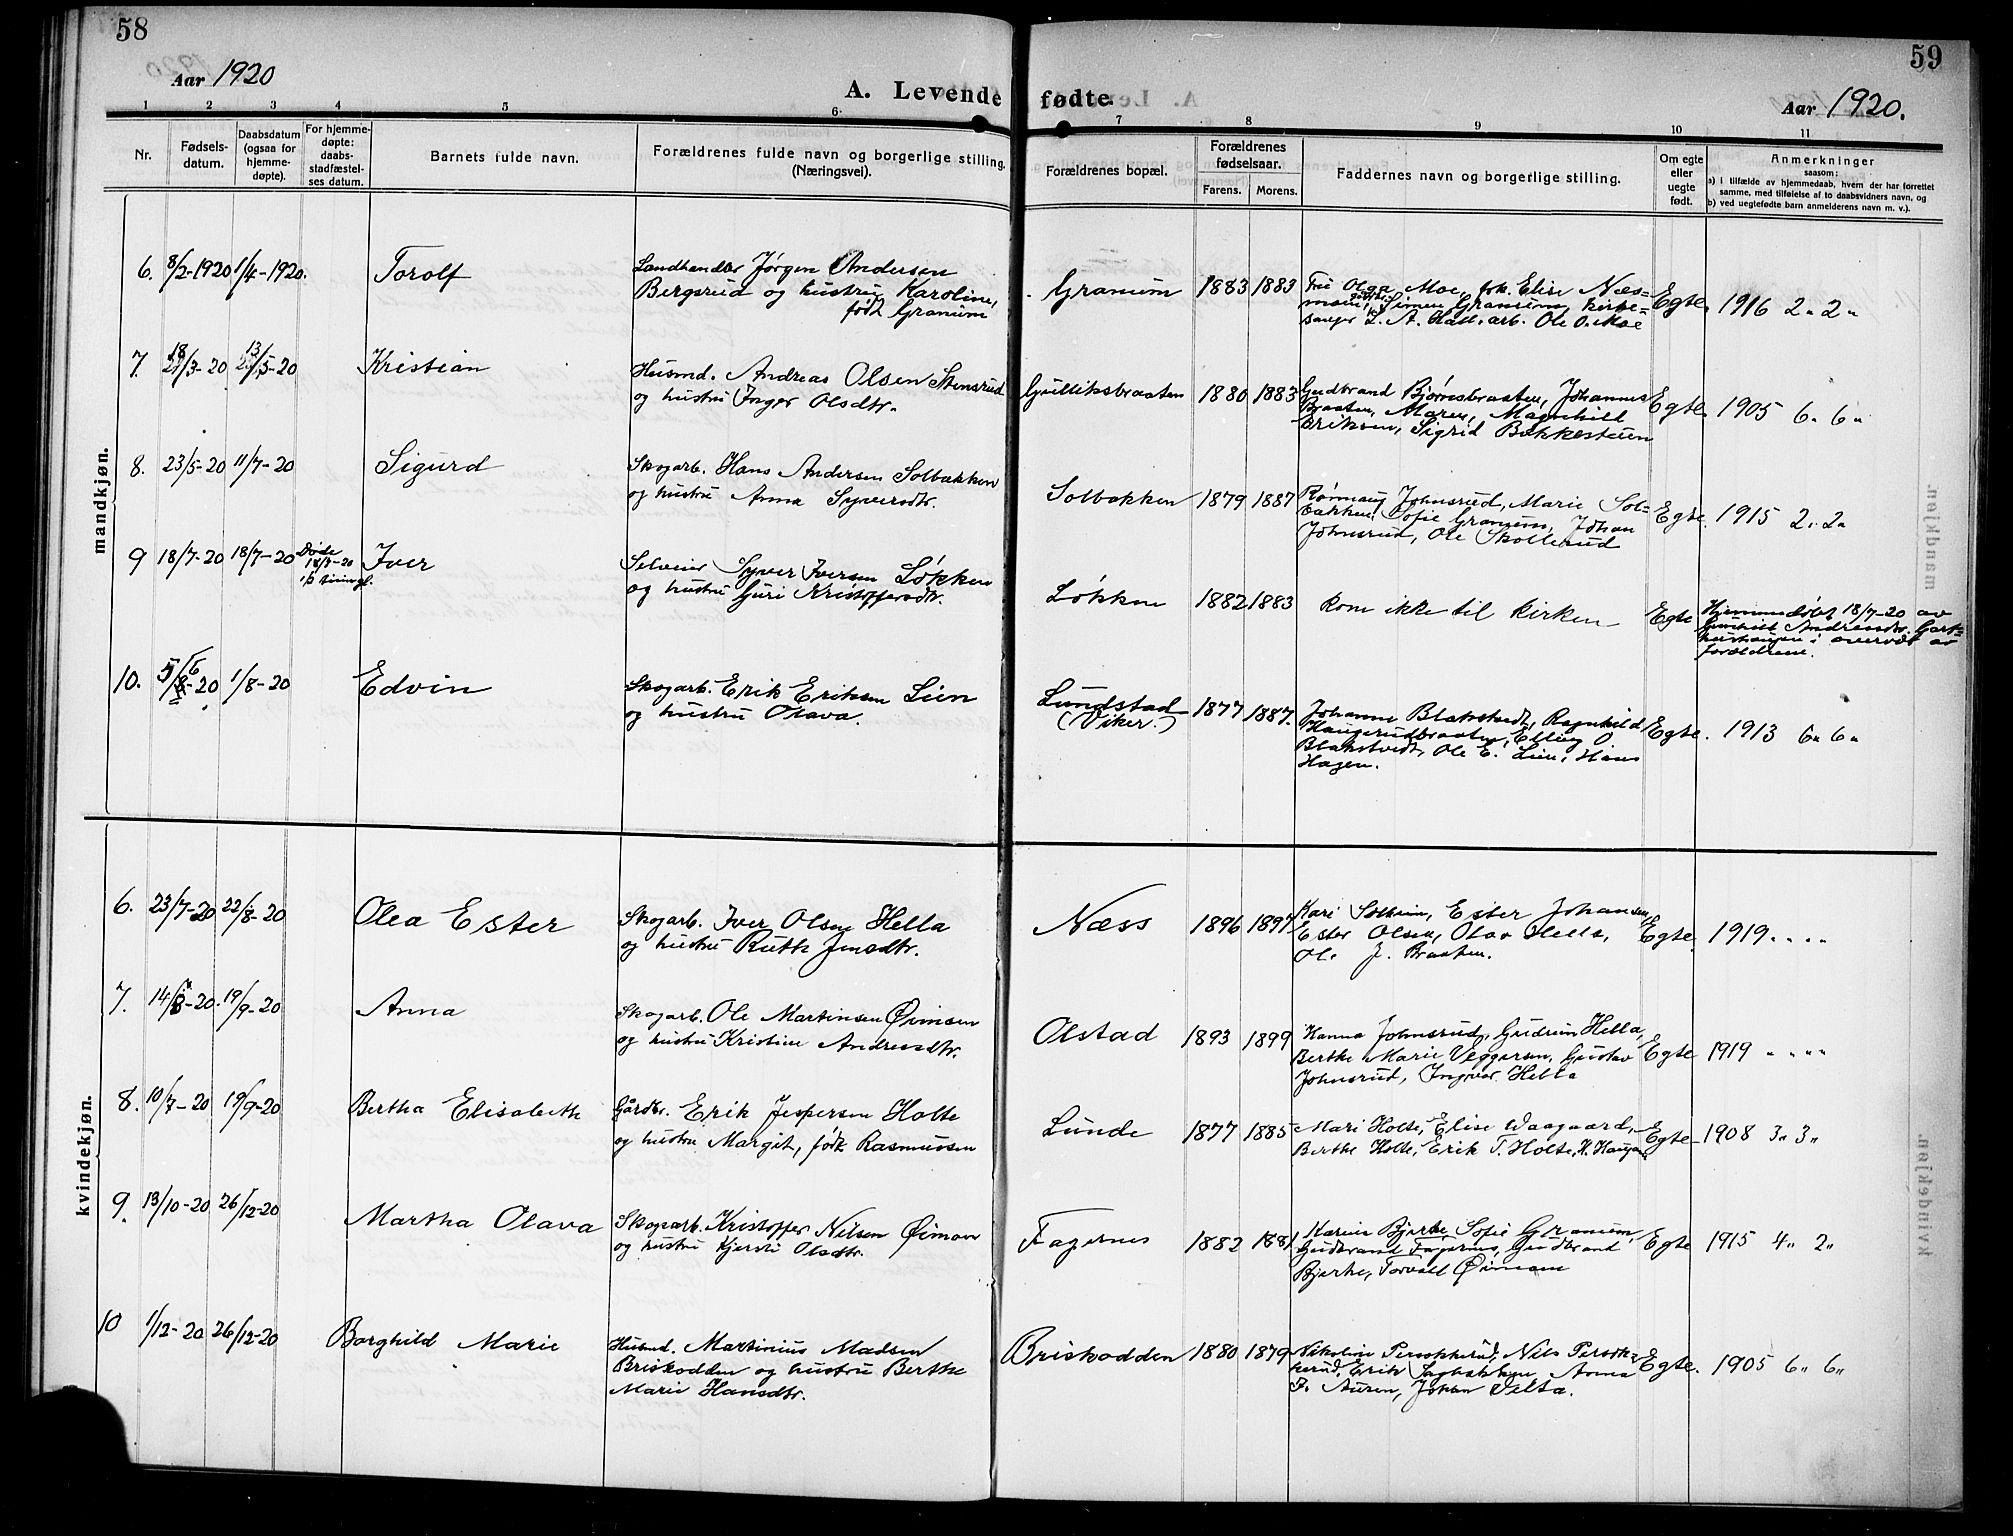 58
59
Aar 1920
A. Levende fødte.
Aar 1920.
1 2 3 4 5 6 7 8 9 10 11
Nr.
Fødsels-
datum.
Daabsdatum
(ogsaa for
hjemme-
døpte).
For hjemme-
døpte:
daabs-
stadfæstel-
ses datum.
Barnets fulde navn.
Forældrenes fulde navn og borgerlige stilling.
(Næringsvei).
Forældrenes bopæl.
Forældrenes
fødselsaar.
Farens. Morens.
Faddernes navn og borgerlige stilling.
Om egte
eller
uegte
født.
Anmerkninger
saasom:
a) i tilfælde av hjemmedaab, hvem der har forrettet
samme, med tilføielse af to daabsvidners navn, og
b) ved uegtefødte barn anmelderens navn m. v.).
mandkjøn.
6. 8/2-1920 1/4-1920. Torolf
Landhandler Jørgen Andersen
Bergsrud og hustru Karoline,
født Granum
Granum 1883 1883
Fru Olga Moe, frk. Elise Næs-
moen, Simen Granum, kirke-
sanger L. A. Hall, arb. Ole O. Moe
Egte. 1916 2 " 2 "
7. 18/3-20 13/5-20 Kristian
Husmd. Andreas Olsen Stensrud
og hustru Inger Olsdtr.
Gulliksbraaten 1880 1883
Gudbrand Bjørnsbraaten, Johannes
Braaten, Maren, Magnhild
Eriksen, Sigrid Bakkestuen
Egte. 1905 6 " 6 "
8. 23/5-20 11/7-20 Sigurd
Skogarb. Hans Andersen Solbakken
og hustru Anna Syversdtr.
Solbakken 1879 1887
Rønnaug Johnsrud, Marie Sol-
bakken, Sofie Granum, Johan
Johnsrud, Ole Skollerud
Egte. 1915 2 " 2 "
9 18/7-20 18/7-20 Døde
18/7-20
Iver
Selveier Syver Iversen Løkken
og hustru Guri Kristoffersdtr.
Løkken 1882 1883
kom ikke til kirken
Egte
Hjemmedøbt 18/7-20 av
Gunhild Andreasdtr.
i overvær av
forældrene.
10. 5/6-20 1/8-20 Edvin
Skogarb. Erik Eriksen Lien
og hustru Olava.
Lundstad
(Viker.)
1877 1887.
Johanne Blakstvedt, Ragnhild
Haugerudbraaten, Elling O.
Blakstvedt, Ole E. Lien, Hans
Hagen.
Egte. 1913 6 " 6 "
kvindekjøn.
6. 23/7-20 22/8-20 Olea Ester
Skogarb. Iver Olsen Hella
og hustru Ruth Jensdtr.
Næss 1896 1897
Kari Solheim, Ester Johansen,
Ester Olsen, Olav Hella,
Ole J. Braaten.
Egte. 1919 " " " "
7. 14/8-20. 19/9-20 Anna
Skogarb. Ole Martinsen Øimoen
og hustru Kristine Andreasdtr.
Olstad 1893 1899
Hanna Johnsrud, Gudrun Hella,
Berthe Marie Veggersen, Gustav
Johnsrud, Ingvar Hella
Egte 1919 " " " "
8. 10/7-20 19/9-20 Bertha Elisabeth
Gårdbr. Erik Jespersen Holte
og hustru Margit, født Rasmussen
Lunde 1877 1885
Mari Holte, Elise Waagaard,
Berthe Holte, Erik T. Holte, H. Haugen
Egte 1908 3 " 3 "
9. 13/10-20 26/12-20 Martha Olava
Skogarb. Kristoffer Nilsen Øimoen
og hustru Kjersti Olsdtr.
Fagernes 1882 1881
Karen Bjerke, Sofie Granum,
Gudbrand Fagernes, Gudbrand
Bjerke, Torvall Øimoen
Egte 1915 4 " 2 "
10 1/12-20 26/12-20 Borghild Marie
Husmd. Martinius Madsen
Briskodden og hustru Berthe
Marie Hansdtr.
Briskodden 1880 1879
Nikoline Persokkerud, Nils Persok-
kerud, Erik Sagbakken, Anna
F. Auren, Johan Velta.
Egte. 1905 6 " 6 "